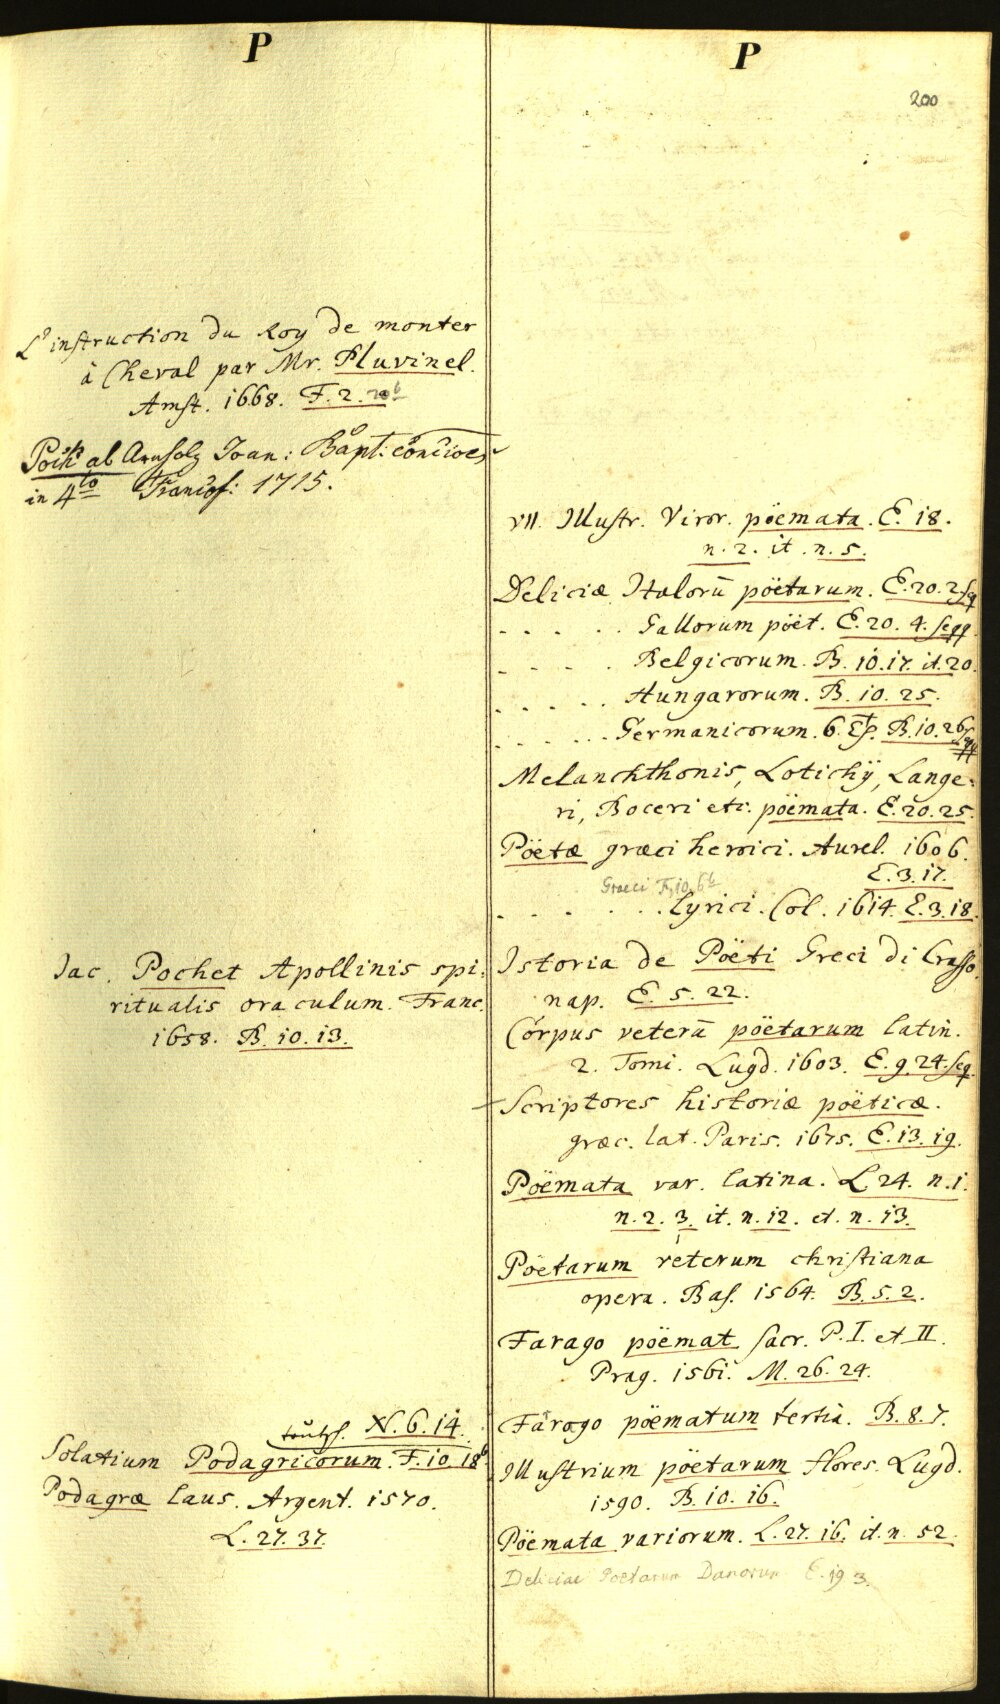 P
L'instruction du Roy de monter
à Cheval par Mr. Pluvinel.
Amst. 1668. F. 2.
ab Joan: Bapt: conciones
in 4to 1715.
Jac. Pochet Apollinis spi:
ritualis oraculum. Franc.
1658. B. 10. 13.
N. 6. 14.
Solatium Podagricorum. F. 10. 18b
Podagræ laus. Argent. 1570.
L. 27. 37.
P
200
VII. Illustr. Viror. pöemata. E. 18.
n. 2. it. n. 5.
Deliciæ Italorū pöetarum. E. 20. 2. seq
. . . . . Gallorum pöet. E. 20. 4. seqq.
- . . . . Belgicorum. B. 10. 17. it. 20.
. . . . . Hungarorum. B. 10. 25.
. . . . . . Germanicorum. 6. B. 10. 26. seqq
Melanchthonis, Lotichÿ, Lange:
ri, Boceri etc. pöemata. E. 20. 25.
Pöetæ græci heroici. Aurel. 1606.
E. 3. 17.
Graeci F. 10. 6b
. . . . . . Lyrici. Col. 1614. E. 3. 18.
Istoria de Pöeti Greci di Crasso.
nap. E. 5. 22.
Corpus veterū pöetarum latin.
2. Tomi. Lugd. 1603. E. 9. 24. seq.
Scriptores historiæ pöeticæ.
græc. lat. Paris. 1675. E. 13. 19.
Pöemata var. latina. L 24. n. 1.
n. 2. 3. it. n. 12. et. n. 13.
Pöetarum veterum christiana
opera. Bas. 1564. B. 5. 2.
Farago pöemat. sacr. P. I. et II.
Prag. 1561. M. 26. 24.
Farago pöematum tertia. B. 8. 7.
Illustrium pöetarum flores. Lugd.
1590. B. 10. 16.
Pöemata variorum. L. 27. 16. it. n. 52.
Deliciae Poetarum Danorum E. 19 3.